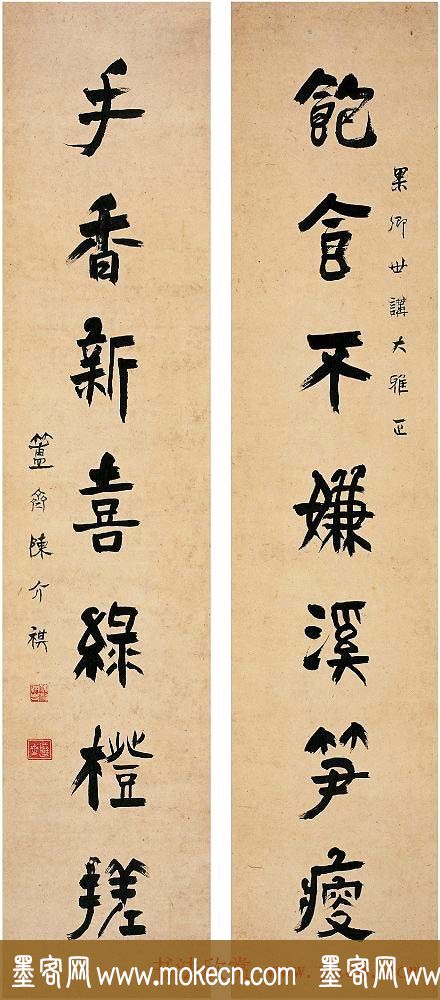 果卿世講大雅正
飽食不嫌溪笋瘦
手香新喜綠橙搓
簠齋陳介祺
墨客网 www.mokecn.com 墨客网 www.